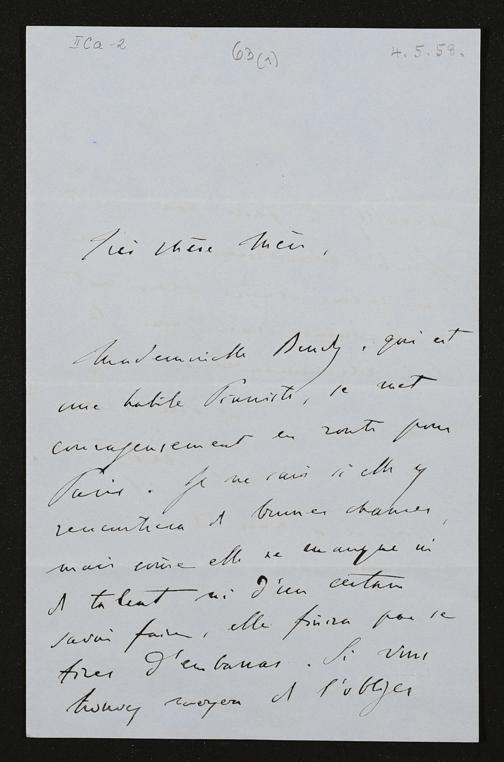 IICa-2 63(1) 4.5.58.
Très chère Mère,
Mademoiselle , qui est
une habile Pianiste, se met
courageusement en route pour
Paris. Je ne sais si elle y
rencontrera de bonnes chances,
mais come elle ne manque ni
de talent ni d'un certain
savoir faire, elle finira par se
tirer d'embarras. Si vous
trouvez moyen de l'obliger